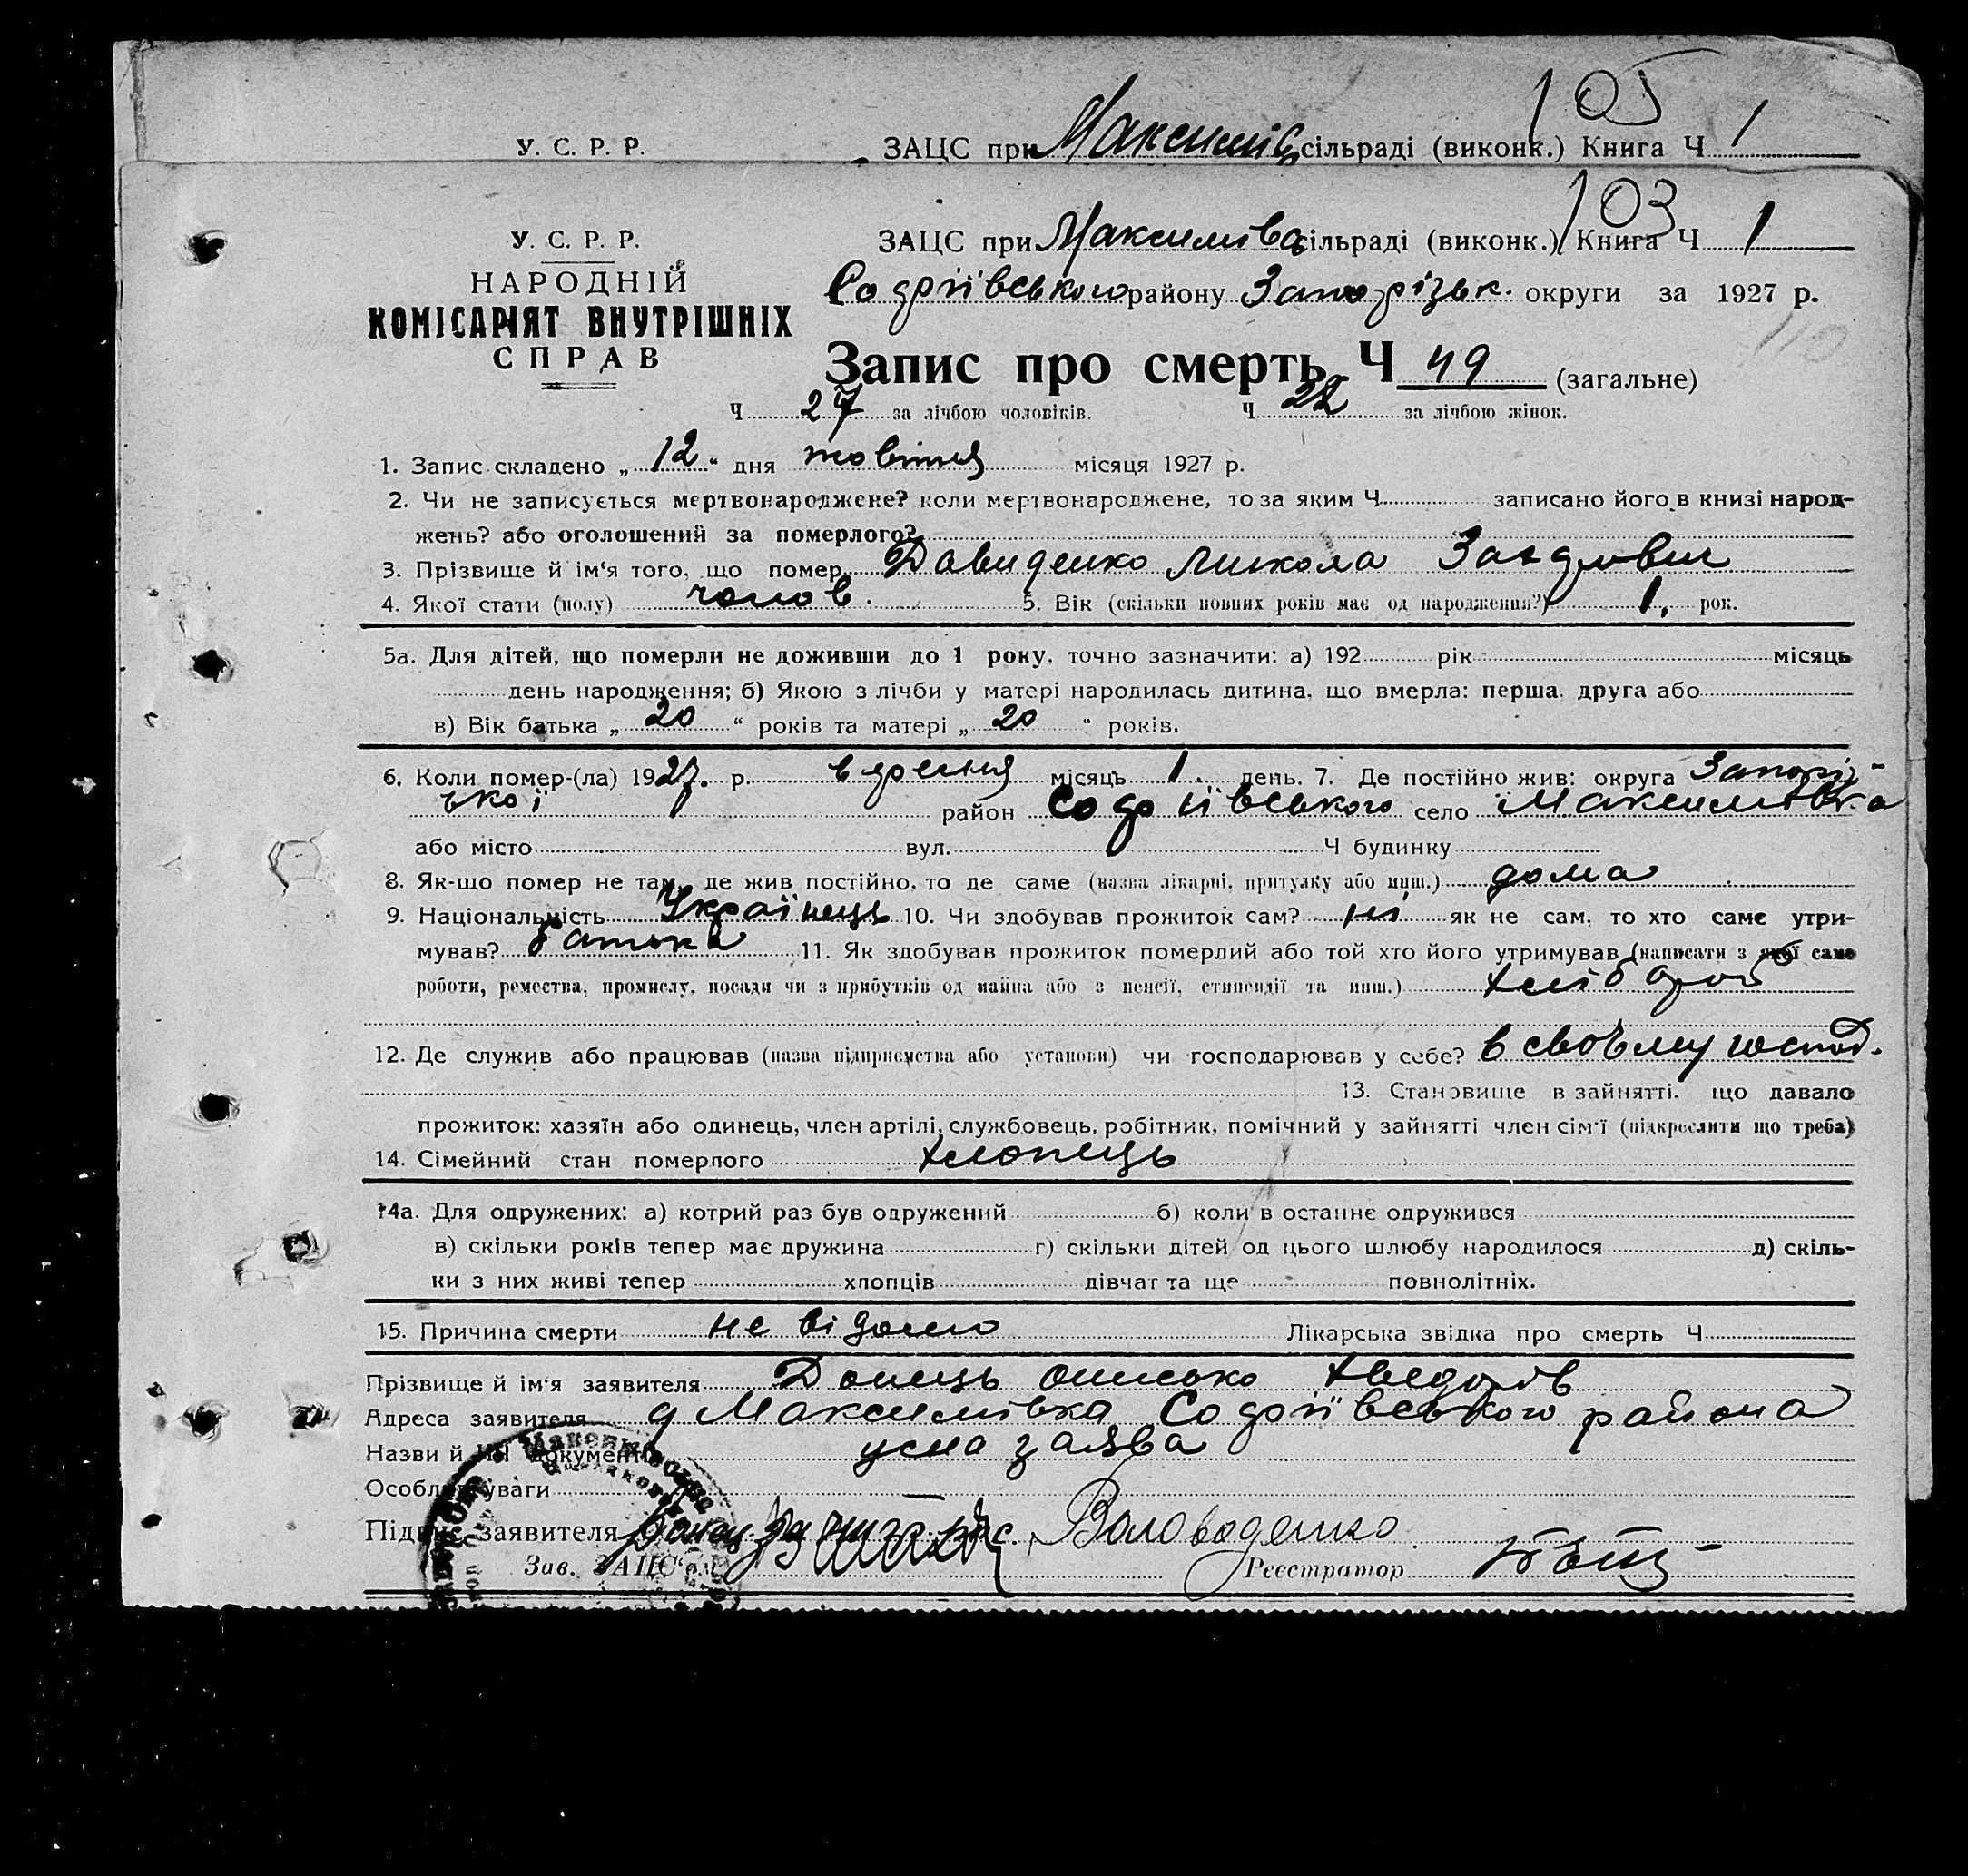 105
У. С. Р. Р. ЗАЦС при Максимів сільраді (виконк.) Книга Ч 1
103
У. С. Р. Р. ЗАЦС при Максимівс сільраді (виконк.) Книга Ч 1
НАРОДНІЙ Софіївського району Запорізьк. округи за 1927 р.
КОМІСАРІЯТ ВНУТРІШНІХ
110
СПРАВ
Запис про смерть Ч 49 (загальне)
Ч 27 за лічбою чоловіків. Ч 22 за лічбою жінок.
1. Запис складено „ 12 “ дня жовтня місяця 1927 р.
2. Чи не записується мертвонароджене? коли мертвонароджене, то за яким Ч записано його в книзі народ-
жень? або оголошений за померлого?
3. Прізвище й ім'я того, що помер Давиденко Микола
4. Якої стати (полу) чолов. 5. Вік (скільки повних років має од народження?) 1. рок.
5а. Для дітей, що померли не доживши до 1 року, точно зазначити: а) 192 рік місяць
день народження; б) Якою з лічби у матері народилась дитина, що вмерла: перша, друга або
в) Вік батька „ 20 “ років та матері „ 20 “ років.
6. Коли помер-(ла) 1927. р. вересня місяць 1. день. 7. Де постійно жив: округа Запоріз-
ької район Софіївського село Максимівка
або місто вул. Ч будинку
8. Як-що помер не там, де жив постійно, то де саме (назва лікарні, притулку або инш.) дома
9. Національність Українець 10. Чи здобував прожиток сам? ні як не сам, то хто саме утри-
мував? батько 11. Як здобував прожиток померлий або той хто його утримував (написати з якої саме
роботи, ремества, промислу, посади чи з прибутків од майна або з пенсії, стипендії та инш.) хлібороб
12. Де служив або працював (назва підприємства або установи) чи господарював у себе? в своєму господ.
13. Становище в зайнятті, що давало
прожиток: хазяїн або одинець, член артілі, службовець, робітник, помічний у зайнятті член сім'ї (підкреслити що треба)
14. Сімейний стан померлого хлопець
14а. Для одружених: а) котрий раз був одружений б) коли в останнє одружився
в) скільки років тепер має дружина г) скільки дітей од цього шлюбу народилося д) скіль-
ки з них живі тепер хлопців дівчат та ще повнолітніх.
15. Причина смерти не відомо Лікарська звідка про смерть Ч
Прізвище й ім'я заявителя Донець Хведорів
Адреса заявителя д Максимівка Софіївського района
Назви й ЧЧ документів усна заява
Особливі уваги
Підпис заявителя Володенко
Зав. ЗАЦС'ом Реєстратор